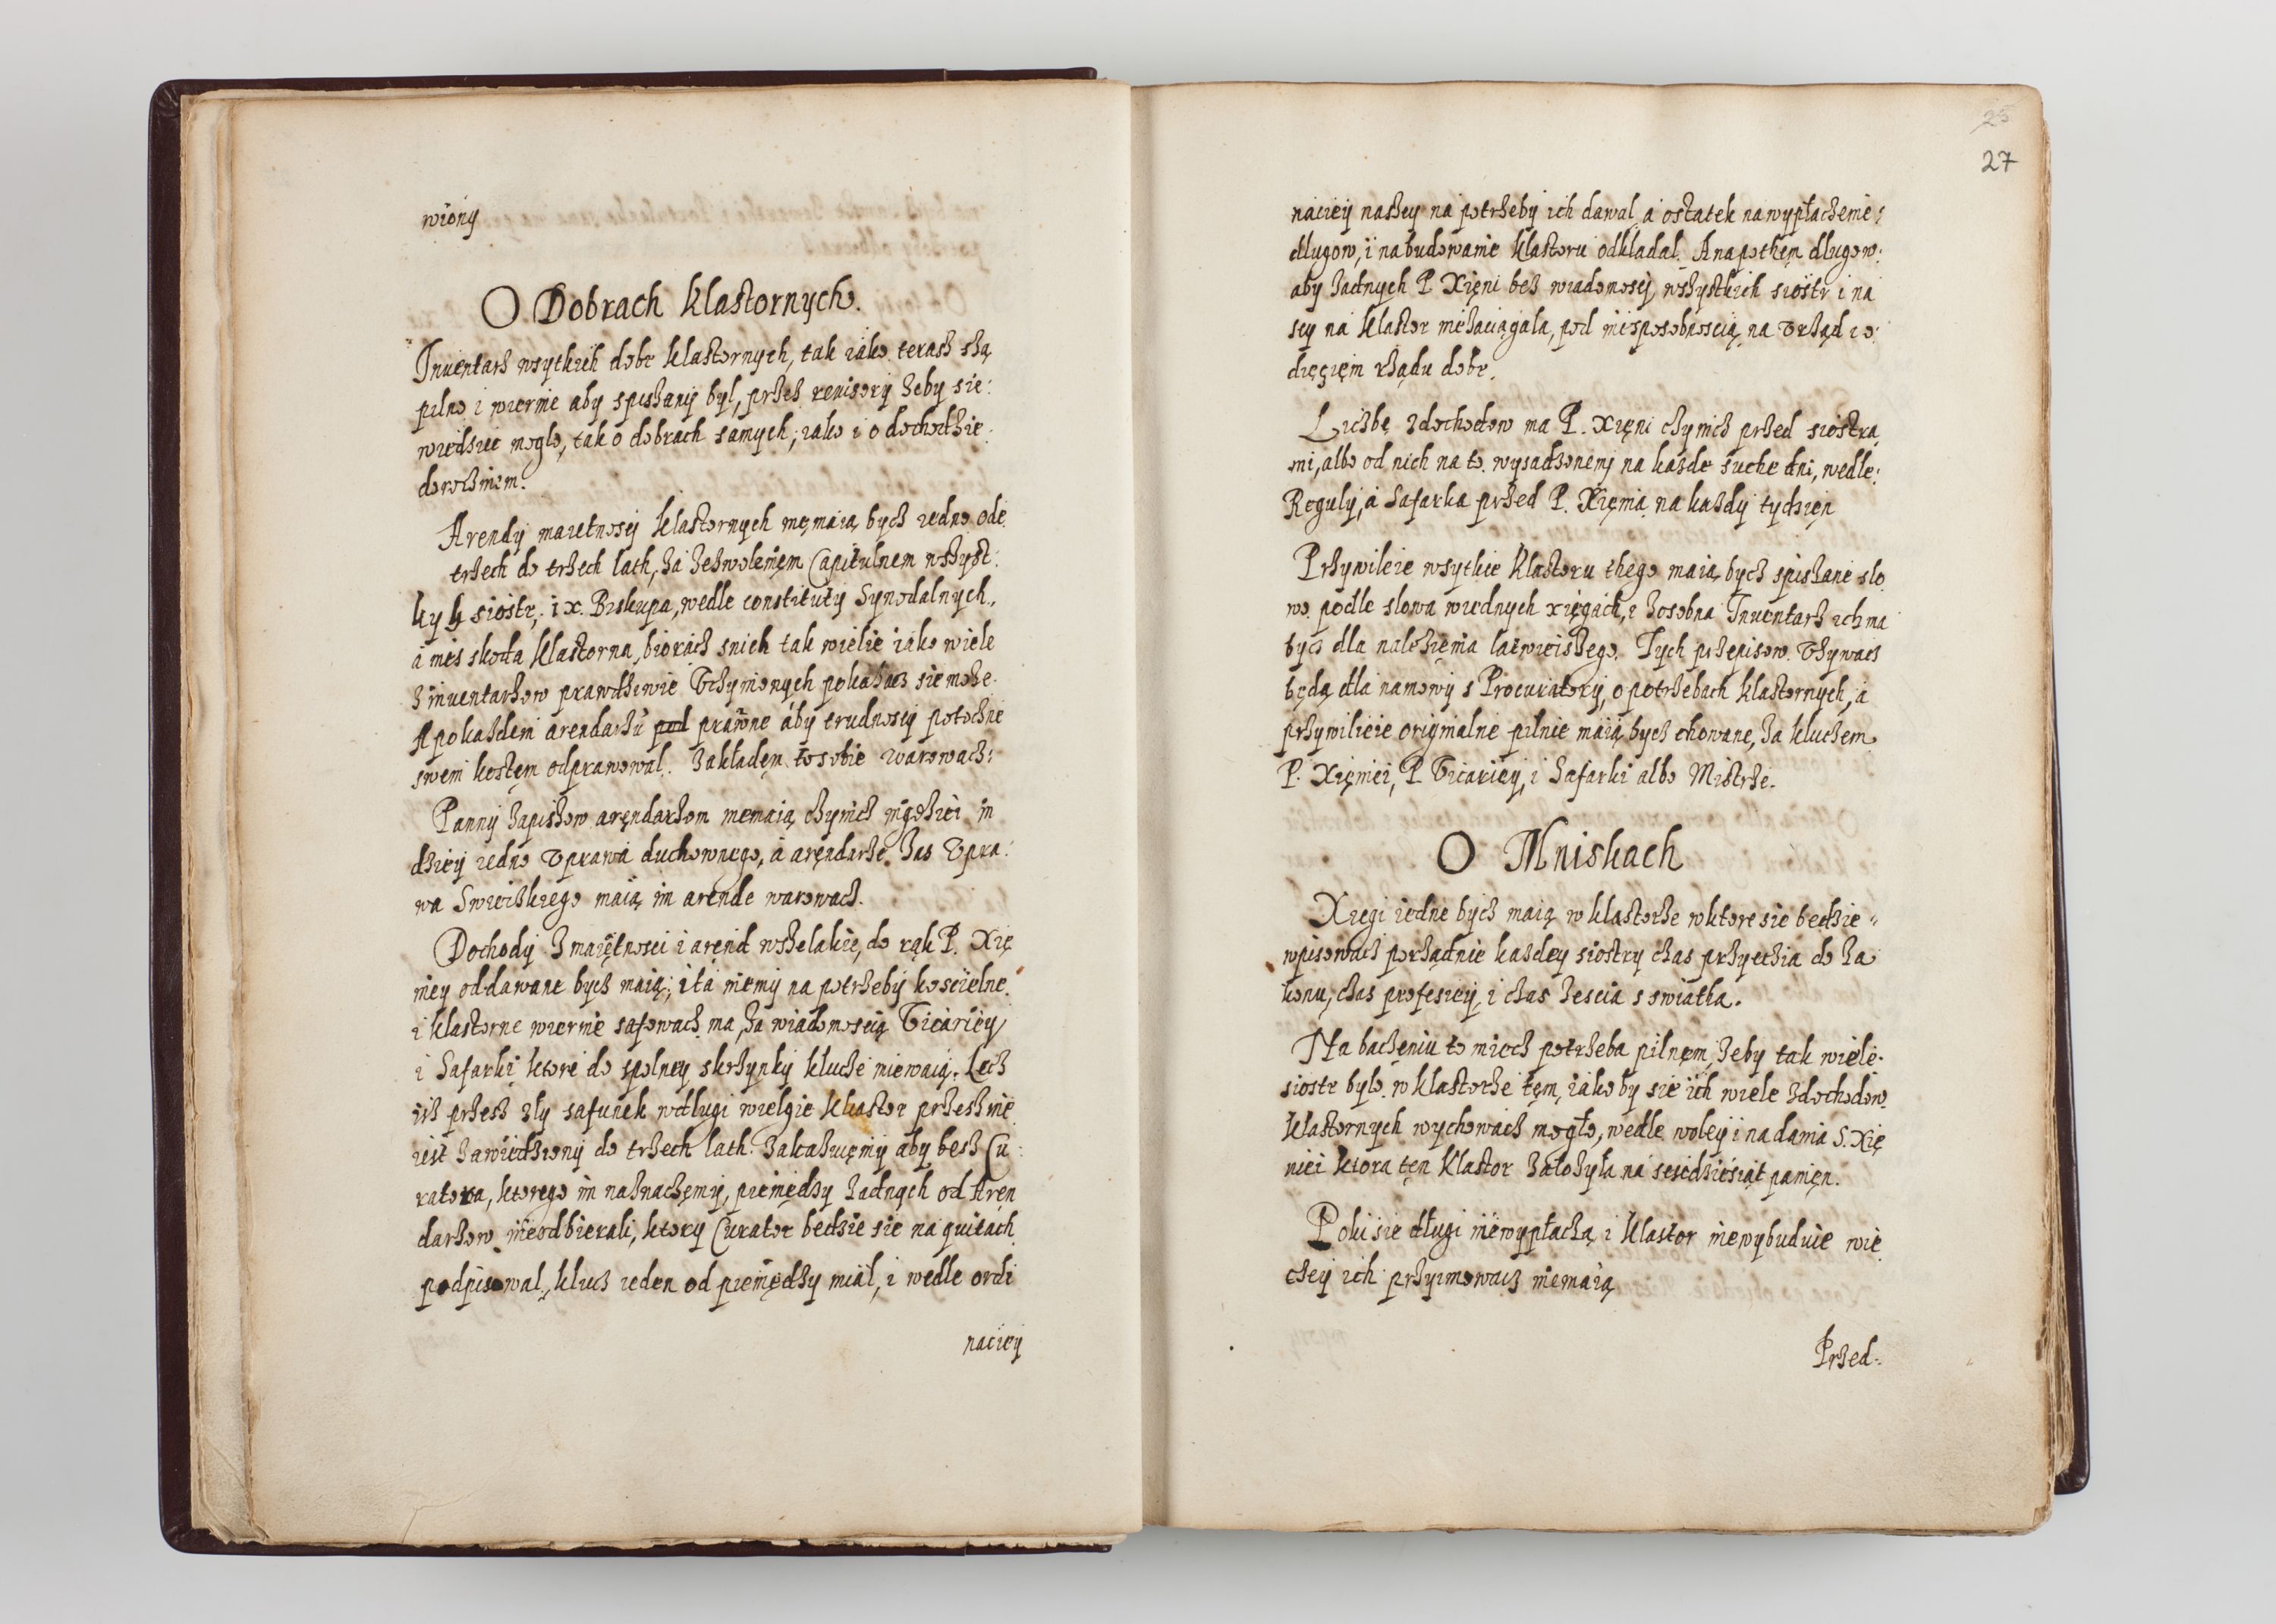 wiony
O Dobrach klastornych.
Inuentarz wsytkich dobr klastornych, tak iako terasz szą
pilno i wiernie aby spiszany był, przez reuisory zeby sie
wiedziec moglo, tak o dobrach samych, iako i o dochodzie
dorocznem.
Arendy maietnosci klastornych nie maią bydz iedno ode
trzech do trzech lath, za zezwoleniem Capitulnem wszyst:
kych siostr, i x. Biskupa, wedle constituty Synodalnych,
a nies skoda klastorna, biorącz snich tak wielie iako wiele
z inuentarzow prawdziwie Vczynionych pokazacz sie moze.
A pokazdem arendarzu pod prawne aby trudnosci potoczne
swem kostem odprawowal. Zakladem to sobie warowacz:
Panny zapiszow arendarzom niemaią czynicz nigdziei in
dziey iedno Vprawa duchownego, a arendarze zas Vpra:
wa Swieczkiego maią im arende warowacz.
Dochody z maiętnosci i arend wszelakie, do rąk P. Xię
niey oddawane bydz maią; i ta niemi na potrzeby koscielne
i klastorne wiernie safowacz ma, za wiadomoscią Vicariey
i Safarki ktore do spolney skrzynky klucze miewaią. Lecz
isz przesz zly safunek w dlugi wielgie klastor przesznie
iest zawiedziony do trzech lath. Zakazuięmy aby besz Cu
ratora, ktorego im naznaczemy, pięniędzy zadnych od Aren
darzow nieodbierali, ktory Curator bedzie sie na quitach
podpisowal, klucz ieden od pieniędzy mial, i wedle ordi
naciey
25
27
naciey naszey na potrzeby ich dawal, a ostatek na wypłaczenie
dlugow, i na budowanie klastoru odkladal. A napothem dlugow
aby zadnych P. Xięni bez wiadomosci wszystkich siostr i na
szy na klastor niezaciągala, pod niesposobnoscią na Vrząd i o
dięcięm rządu dobr.
Liczbę z dochodow ma P. Xięni czynicz przed siostra
mi, albo od nich na to wysadzonemi na kazde suche dni, wedle
Reguly, a Safarka przed P. Xięnią na kazdy tydzięn
Przywileie wsytkie klastoru thego maią bydz spiszane slo
wo podle slowa wiednych xięgach, i zosobna Inuentarz ich ma
bydz dla nalezięnia latwieiszego. Tych przepisow Vzywacz
będą dla namowy s Procuratory, o potrzebach klastornych, a
przywilieie originalne pilnie maią bydz chowane, za kluczem
P. Xięniei, P. Vicariey, i Safarki albo Mistrze.
O Mniskach
Xięgi iedne bydz maią w klastorze w ktore sie bedzie
wpisowacz porządnie kazdey siostry czas przyeczia do za
konu, czas profesiey, i czas zescia s swiatka.
Na baczeniu to miecz potrzeba pilnem, zeby tak wiele
siostr bylo w klastorze tem, iako by sie ich wiele z dochodow
klastornych wychowacz moglo, wedle woley i nadania S. Xię
niei ktora ten klastor zalozyła na szesciedziesiąt panien.
Poki sie dlugi niewypłaczą i klastor niewybuduie wie
czey ich przyimowacz niemaią
Przed-